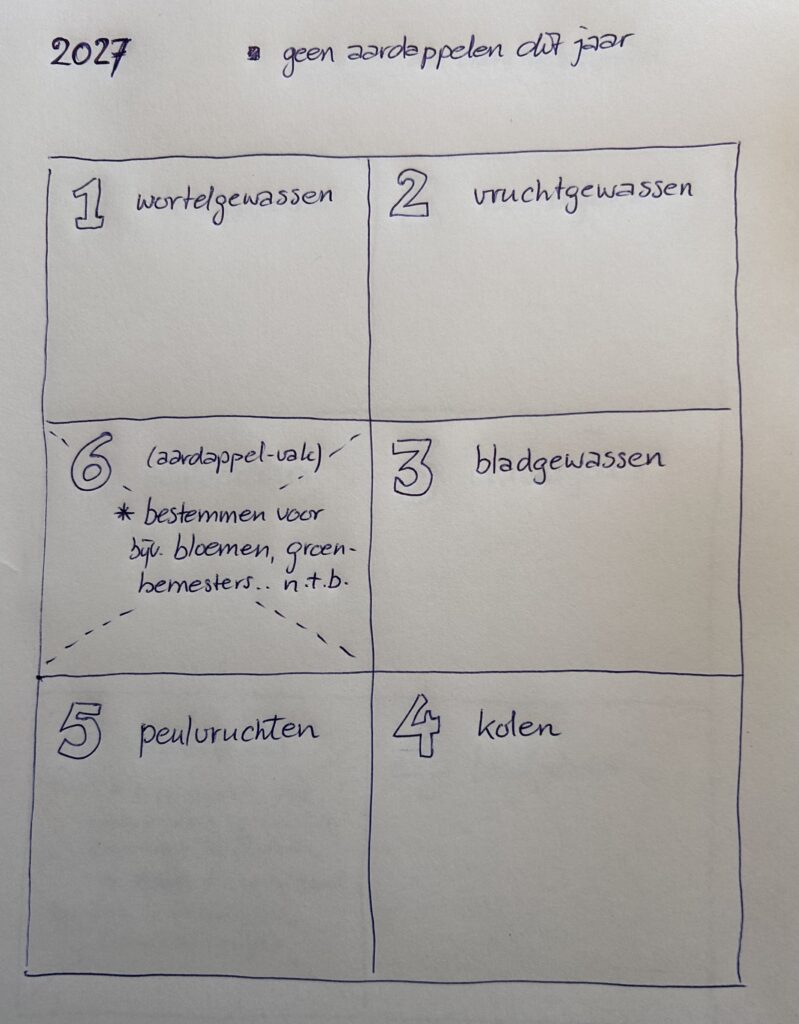 2027
▪ geen aardappelen dit jaar
1 wortelgewassen
2 vruchtgewassen
6 (aardappel-vak)
* bestemmen voor
bijv. bloemen, groen-
bemesters.. n.t.b.
3 bladgewassen
5 peulvruchten
4 kolen